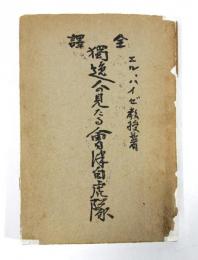 エル、ハイゼ教授著
全譯
獨逸人の見たる會津白虎隊